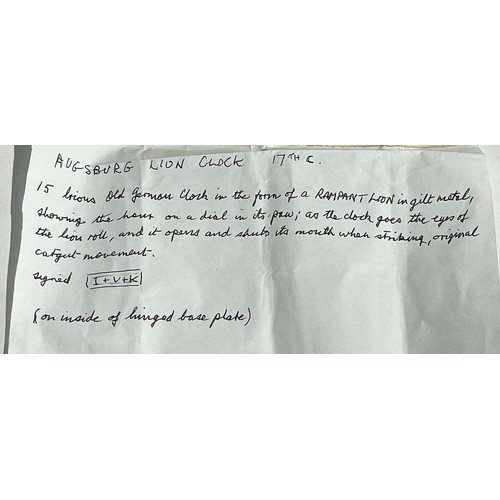 AUGSBURG LION CLOCK 17TH C.
15 Old German Clock in the form of a RAMPANT LION in gilt metal,
showing the hour on a dial in its paw; as the clock goes the eyes of
the lion roll, and it opens and shuts its mouth when striking, original
catgut movement.
signed I+V+K
(on inside of hinged base plate)